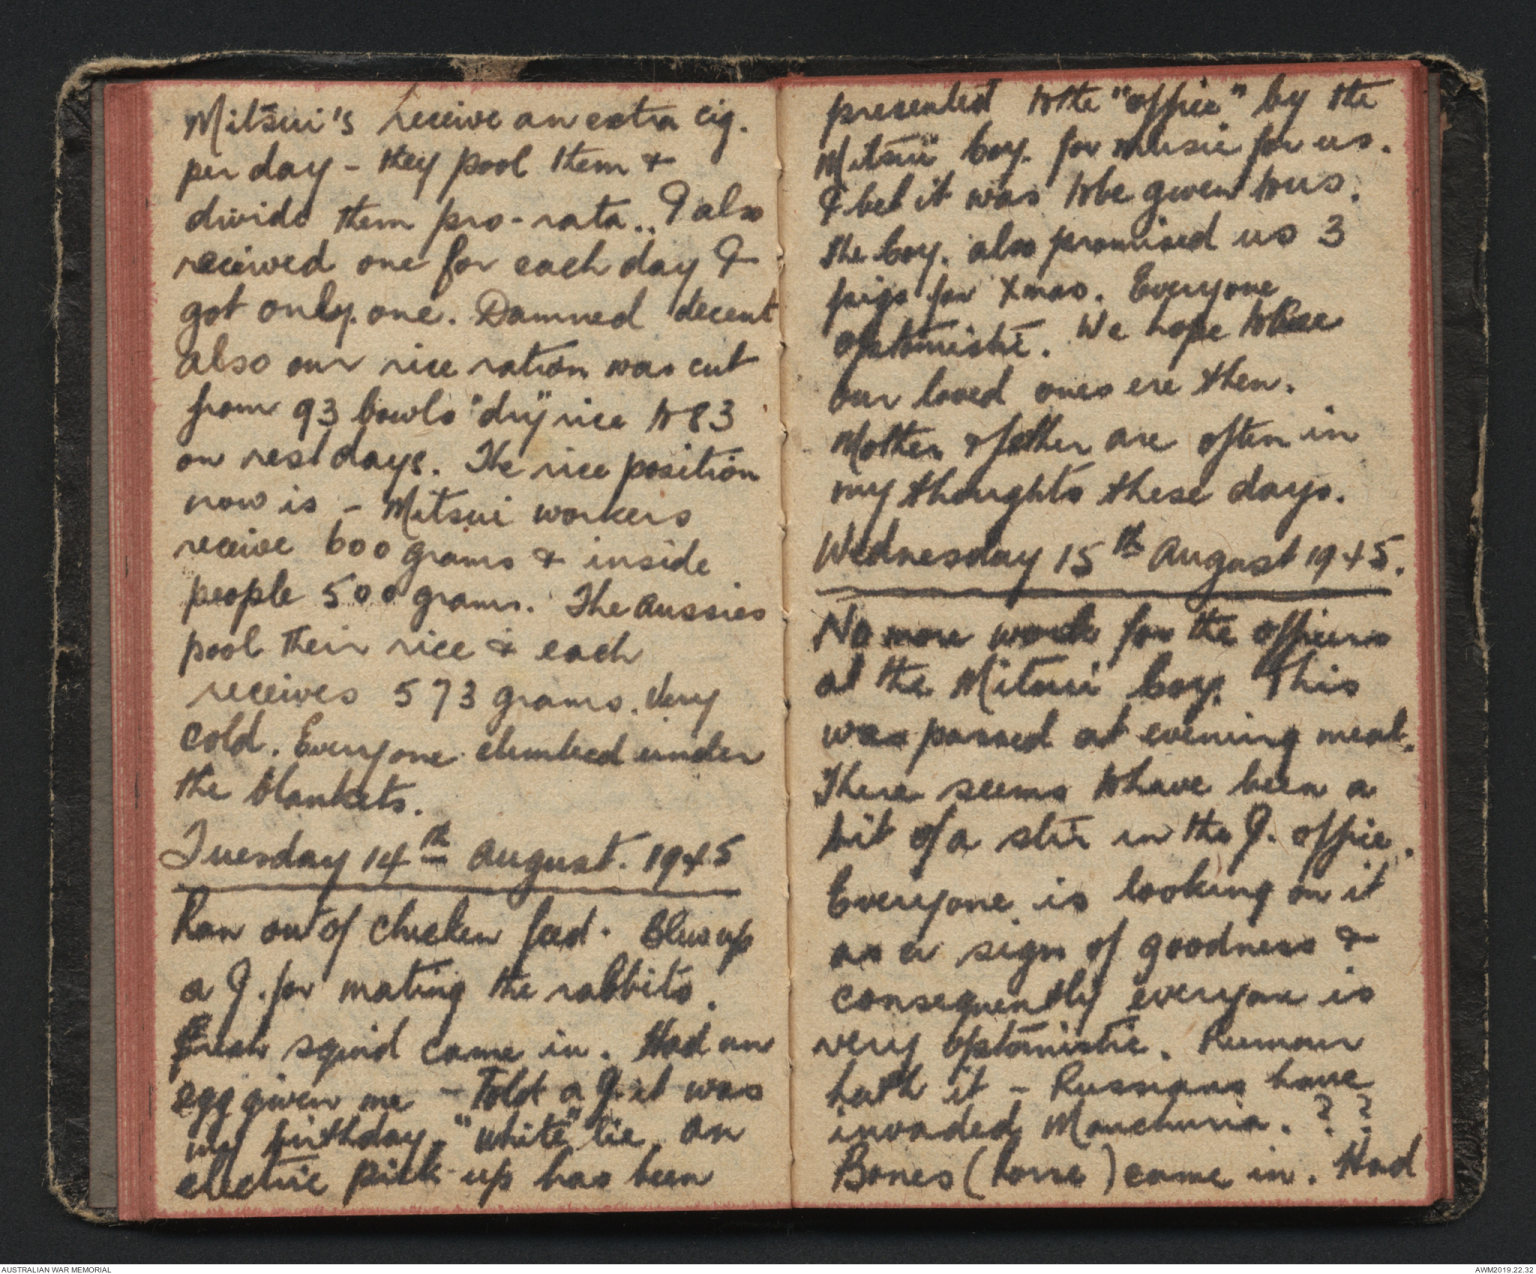 Mitsui's receive an extra cig.
per day - they pool them &
divide them pro-rata.. I also
received one for each day I
got only one. Damned decent
also our rice ration was cut
from 93 bowls "dry" rice to 83
on rest days. The rice position
now is - Mitsui workers
receive 600 grams & inside
people 500 grams. The Aussies
pool their rice & each
receives 573 grams. Very
cold. Everyone climbed under
the blankets.
Tuesday 14th August. 1945
Ran out of chicken feed. Blew up
a J. for mating the rabbits.
Fresh squid came in. Had an
egg given me - Told a J. it was
my birthday. "White" lie. An
electric pick-up has been
presented to the "office" by the
Mitsui Coy. for music for us.
I bet it was to be given to us.
The Coy. also promised us 3
pigs for Xmas. Everyone
optomistic. We hope to see
our loved ones ere then.
Mother & father are often in
my thoughts these days.
Wednesday 15th August 1945.
No more work for the officers
at the Mitsui Coy. This
was passed at evening meal.
There seems to have been a
bit of a stir in the J. office.
Everyone is looking on it
as a sign of goodness &
consequently everyone is
very optomistic. Rumour
hath it - Russians have
invaded Manchuria. ? ?
Bones (horse) came in. Had
AUSTRALIAN WAR MEMORIAL
AWM2019.22.32